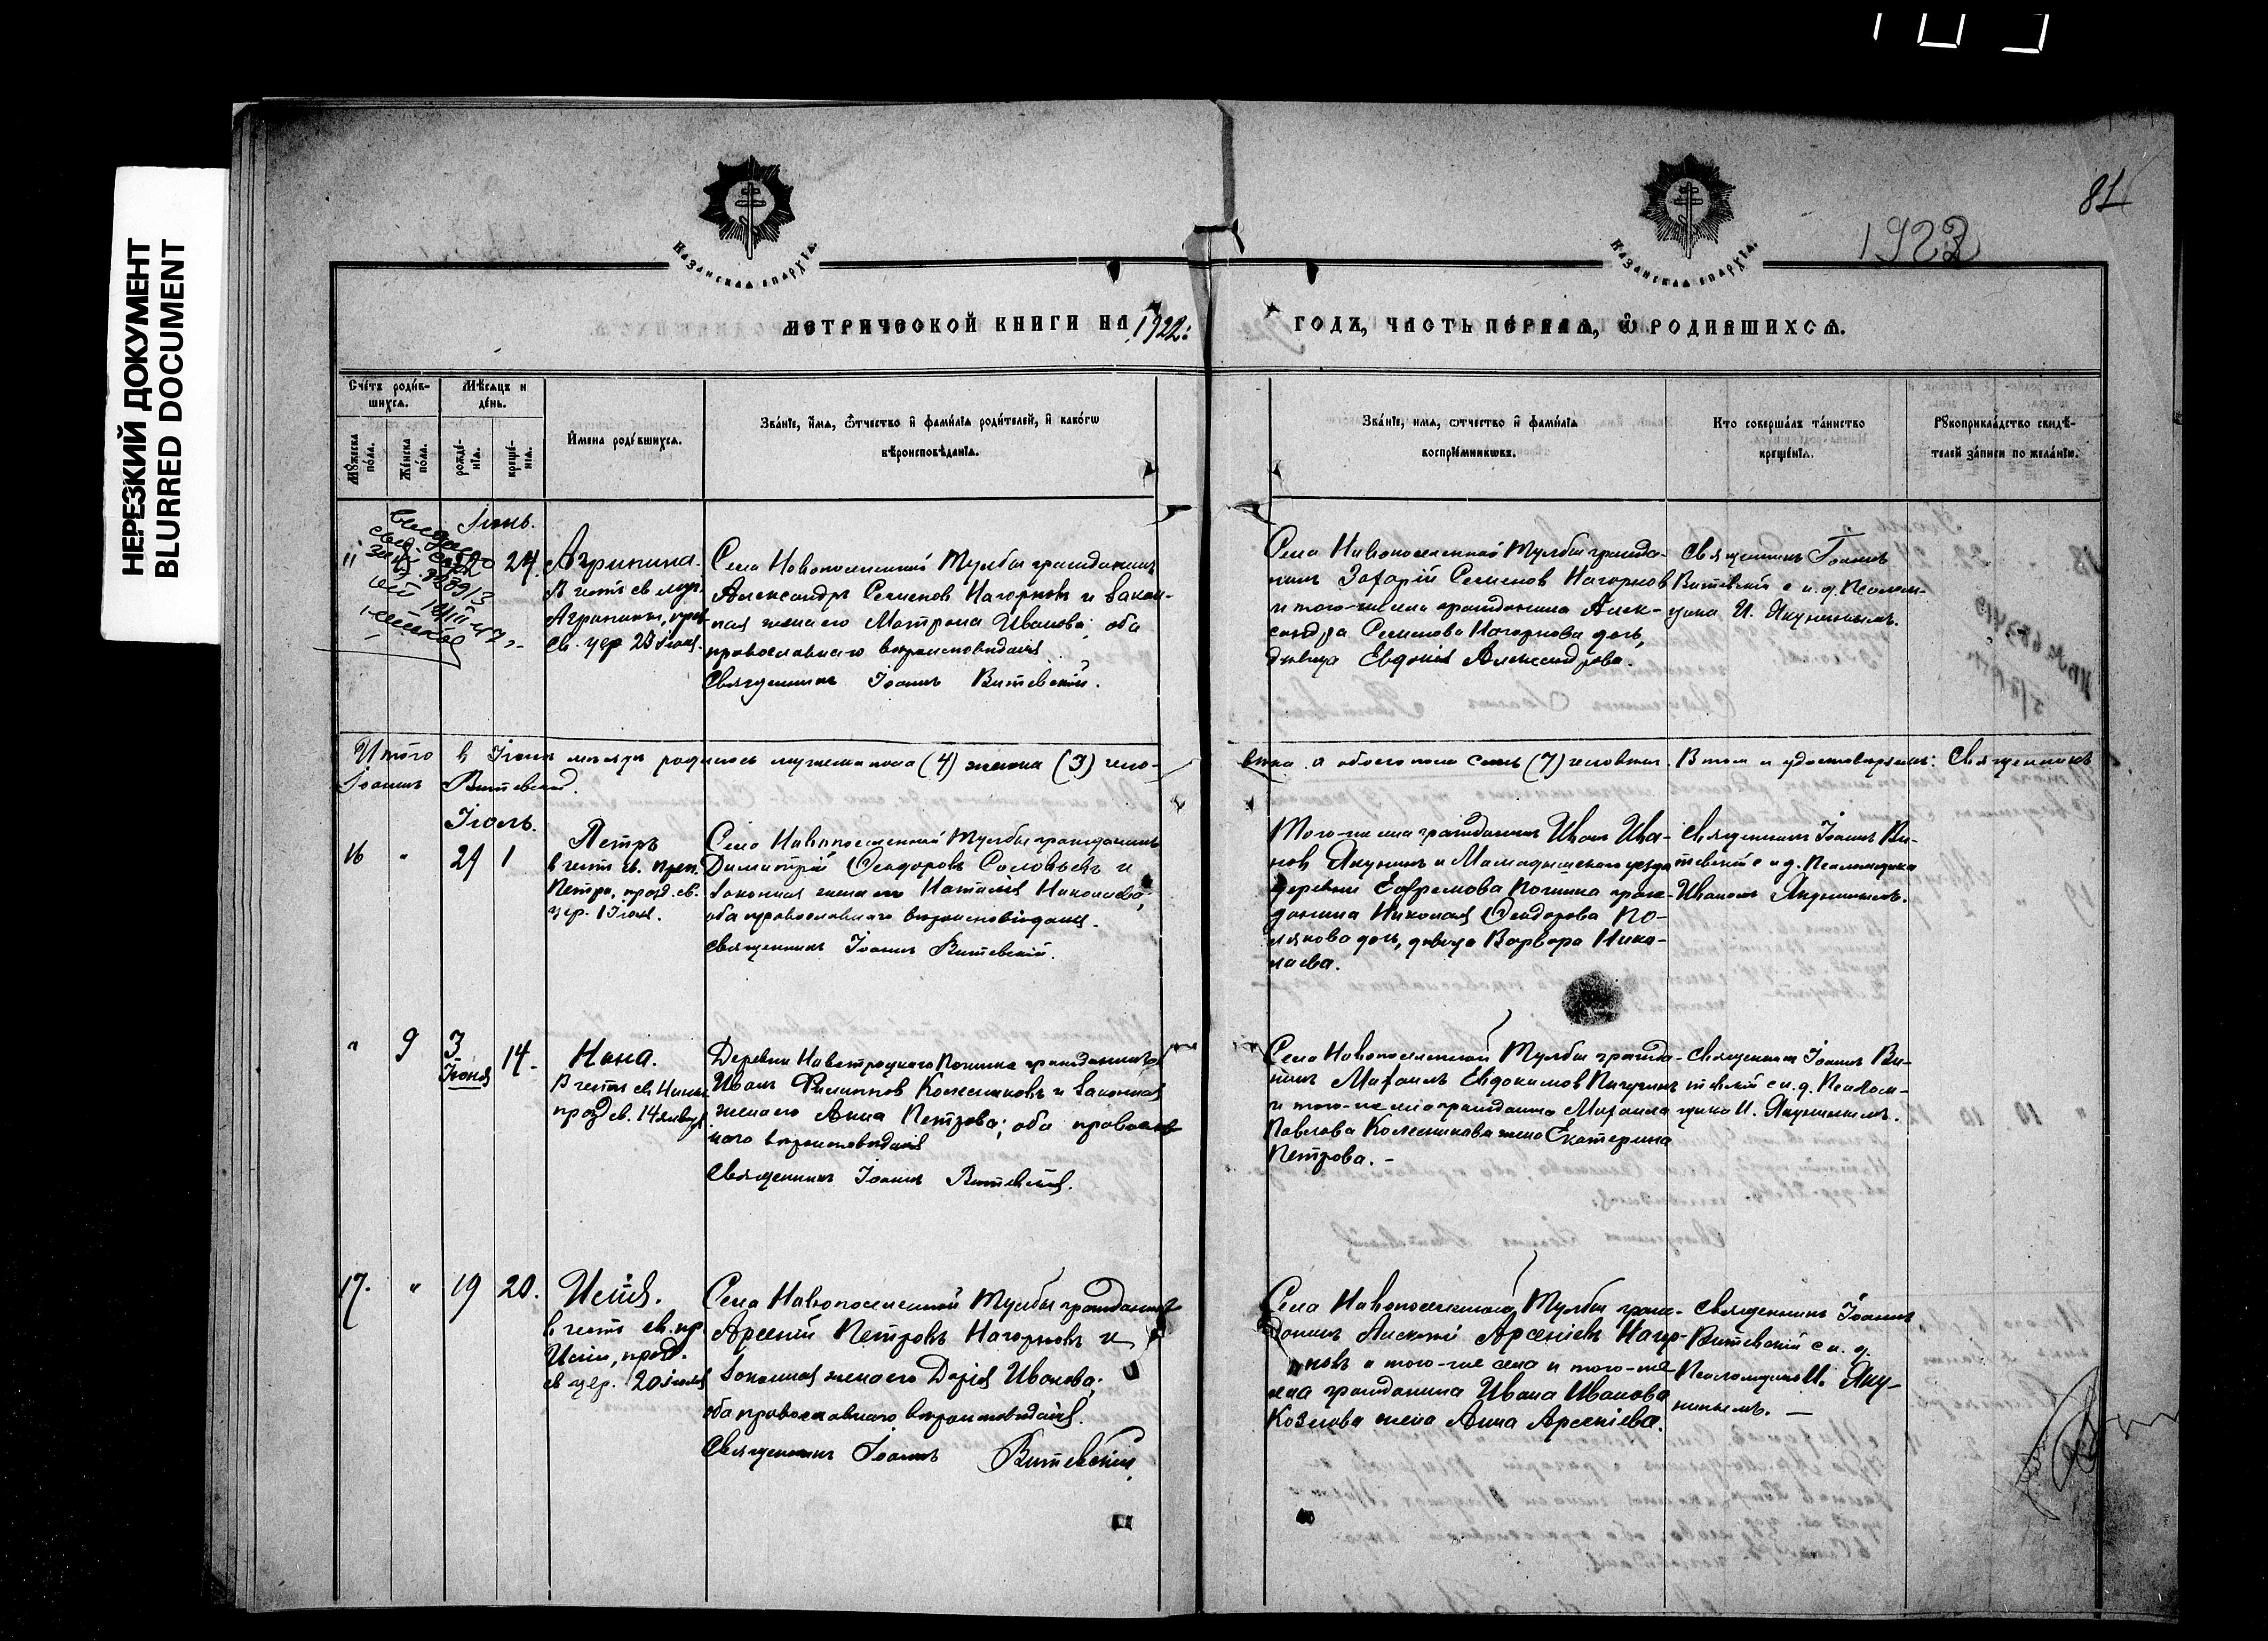 НЕРЕЗКИЙ ДОКУМЕНТ
BLURRED DOCUMENT
81
1922
КАЗАНСКАЯ ЕПАРХІЯ.
КАЗАНСКАЯ ЕПАРХІЯ.
МЕТРИЧЕСКОЙ КНИГИ НА 1922: ГОДЪ, ЧАСТЬ ПЕРВАЯ, Ѽ РОДИВШИХСЯ.
Сче́тъ роди́в-
шихся.
Мѣ́сяцъ и
де́нь.
Мꙋ́жеска
по́ла.
Же́нска
по́ла.
рожде́-
нія.
креще́-
нія.
И́мена роди́вшихся.
Зва́ніе, и́мя, ѻ́тчество и҆ фами́лія роди́телей, и҆ како́гѡ
вѣроисповѣ́данія.
Зва́ніе, имя, ѻтчество и҆ фами́лія
воспріе́мниковъ.
Кто соверша́лъ та́инство
креще́нія.
Рꙋкоприкла́дство свидѣ́-
телей за́писи по жела́нію.
Іюнь.
24.
Агрипина.
В честь св. муч.
Агрипины, празд.
св. цер. 23 Іюня.
Села Новопоселенной Тулбы гражданинъ
Александръ Семенов Нагорновъ и закон-
ная жена его Матрона Иванова; оба
православнаго вѣроисповѣданія
Священникъ Іоаннъ Витевскій.
Села Новопоселенной Тулбы гражда-
нинъ Захарій Семенов Нагорнов
и того-же села гражданина Алек-
сандра Семенова Нагорнова дочь,
дѣвица Евдокія Александрова.
Священникъ Іоаннъ
Витевскій с и. д. Псалом-
щика И. Якунинымъ.
Итого в Іюнѣ мѣсяцѣ родилось мужеска пола (4) женска (3) чело-
вѣка а обоего пола семь (7) человѣкъ. В том и удостовѣряемъ: Священникъ
Іоаннъ Витевскій.
Іюль.
16 " 29 1
Петръ
в честь св. Преп.
Петра, празд. св.
цер. 1 Іюля.
Села Новопоселенной Тулбы гражданинъ
Димитрій Ѳеодоровъ Соловьевъ и
законная жена его Наталія Николаева;
оба православнаго вѣроисповѣданія.
Священникъ Іоаннъ Витевскій.
Того-же села гражданин Иван Ива-
нов Якунинъ и Мамадышскаго уѣзда
деревни Ефремова Починка граж-
данина Николая Ѳеодорова По-
лякова дочь, дѣвица Варвара Нико-
лаева.
Священникъ Іоаннъ Ви-
тевскій с и д. Псаломщика
Иваномъ Якунинымъ.
" 9 3 14.
Іюня
Нина.
В честь св. Нины
празд св. 14 января
Деревни Новотроцкаго Починка гражданинъ
Иван Филиппов Колесниковъ и законная
жена его Анна Петрова; оба православ-
наго вѣроисповѣданія
Священникъ Іоаннъ Витевскій.
Села Новопоселенной Тулбы гражда-
нинъ Михаилъ Евдокимов Пичугинъ
и того-же села гражданина Михаила
Павлова Колесникова жена Екатерина
Петрова. –
Священник Іоаннъ Ви-
тевскій с и. д. Псалом-
щика И. Якунинымъ.
17. " 19 20.
Илія.
в честь св. пр.
Иліи, празд.
св цер. 20 Іюля
Села Новопоселенной Тулбы гражданинъ
Арсеній Петровъ Нагорновъ и
законная жена его Дарія Иванова;
оба православнаго вѣроисповѣданія.
Священникъ Іоаннъ Витевскій.
Села Новопоселенной Тулбы граж-
данинъ Алексѣй Арсеніевъ Нагор-
новъ и того-же села и того-же
села гражданина Ивана Иванова
Козлова жена Анна Арсеніева.
Священникъ Іоаннъ
Витевскій с и. д.
Псаломщика И. Яку-
нинымъ. –